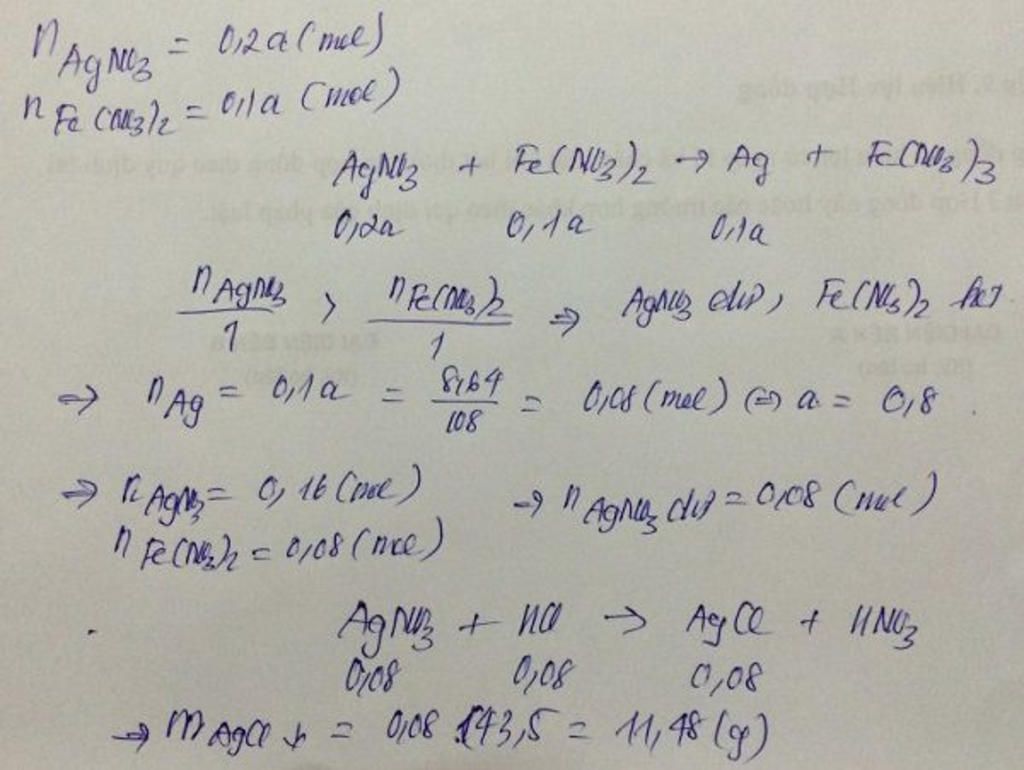 n AgNO3 = 0,2a (mol)
n Fe(NO3)2 = 0,1a (mol)
AgNO3 + Fe(NO3)2 → Ag + Fe(NO3)3
0,2a 0,1a 0,1a
nAgNO3/1 > nFe(NO3)2/1 ⇒ AgNO3 dư, Fe(NO3)2 hết
⇒ nAg = 0,1a = 8,64/108 = 0,08 (mol) ⇔ a = 0,8.
⇒ nAgNO3 = 0,16 (mol) → nAgNO3 dư = 0,08 (mol)
nFe(NO3)2 = 0,08 (mol)
AgNO3 + HCl → AgCl + HNO3
0,08 0,08 0,08
→ mAgCl ↓ = 0,08.143,5 = 11,48 (g)